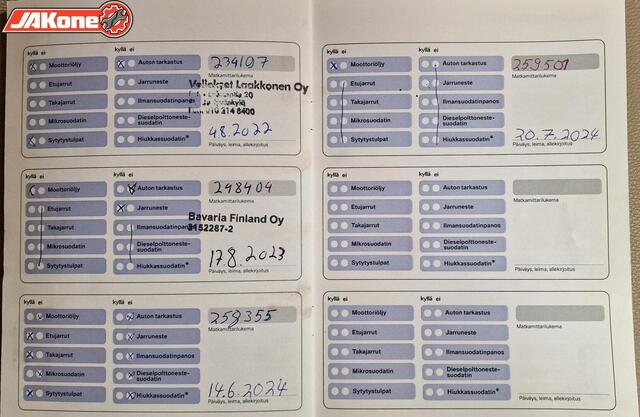 JAKone
kyllä ei kyllä ei
Moottoriöljy
Etujarrut
Takajarrut
Mikrosuodatin
Sytytystulpat
Auton tarkastus
Jarruneste
Ilmansuodatinpanos
Dieselpolttoneste-
suodatin
Hiukkassuodatin*
239107
Matkamittarilukema
Veljekset Laakkonen Oy
4.8.2022
Päiväys, leima, allekirjoitus
Moottoriöljy
Etujarrut
Takajarrut
Mikrosuodatin
Sytytystulpat
Auton tarkastus
Jarruneste
Ilmansuodatinpanos
Dieselpolttoneste-
suodatin
Hiukkassuodatin*
248404
Matkamittarilukema
Bavaria Finland Oy
2152287-2
17.8.2023
Päiväys, leima, allekirjoitus
kyllä ei kyllä ei
Moottoriöljy
Etujarrut
Takajarrut
Mikrosuodatin
Sytytystulpat
Auton tarkastus
Jarruneste
Ilmansuodatinpanos
Dieselpolttoneste-
suodatin
Hiukkassuodatin*
259355
Matkamittarilukema
14.6.2024
Päiväys, leima, allekirjoitus
kyllä ei kyllä ei
Moottoriöljy
Etujarrut
Takajarrut
Mikrosuodatin
Sytytystulpat
Auton tarkastus
Jarruneste
Ilmansuodatinpanos
Dieselpolttoneste-
suodatin
Hiukkassuodatin*
259501
Matkamittarilukema
20.7.2024
Päiväys, leima, allekirjoitus
kyllä ei kyllä ei
Moottoriöljy
Etujarrut
Takajarrut
Mikrosuodatin
Sytytystulpat
Auton tarkastus
Jarruneste
Ilmansuodatinpanos
Dieselpolttoneste-
suodatin
Hiukkassuodatin*
Matkamittarilukema
Päiväys, leima, allekirjoitus
kyllä ei kyllä ei
Moottoriöljy
Etujarrut
Takajarrut
Mikrosuodatin
Sytytystulpat
Auton tarkastus
Jarruneste
Ilmansuodatinpanos
Dieselpolttoneste-
suodatin
Hiukkassuodatin*
Matkamittarilukema
Päiväys, leima, allekirjoitus